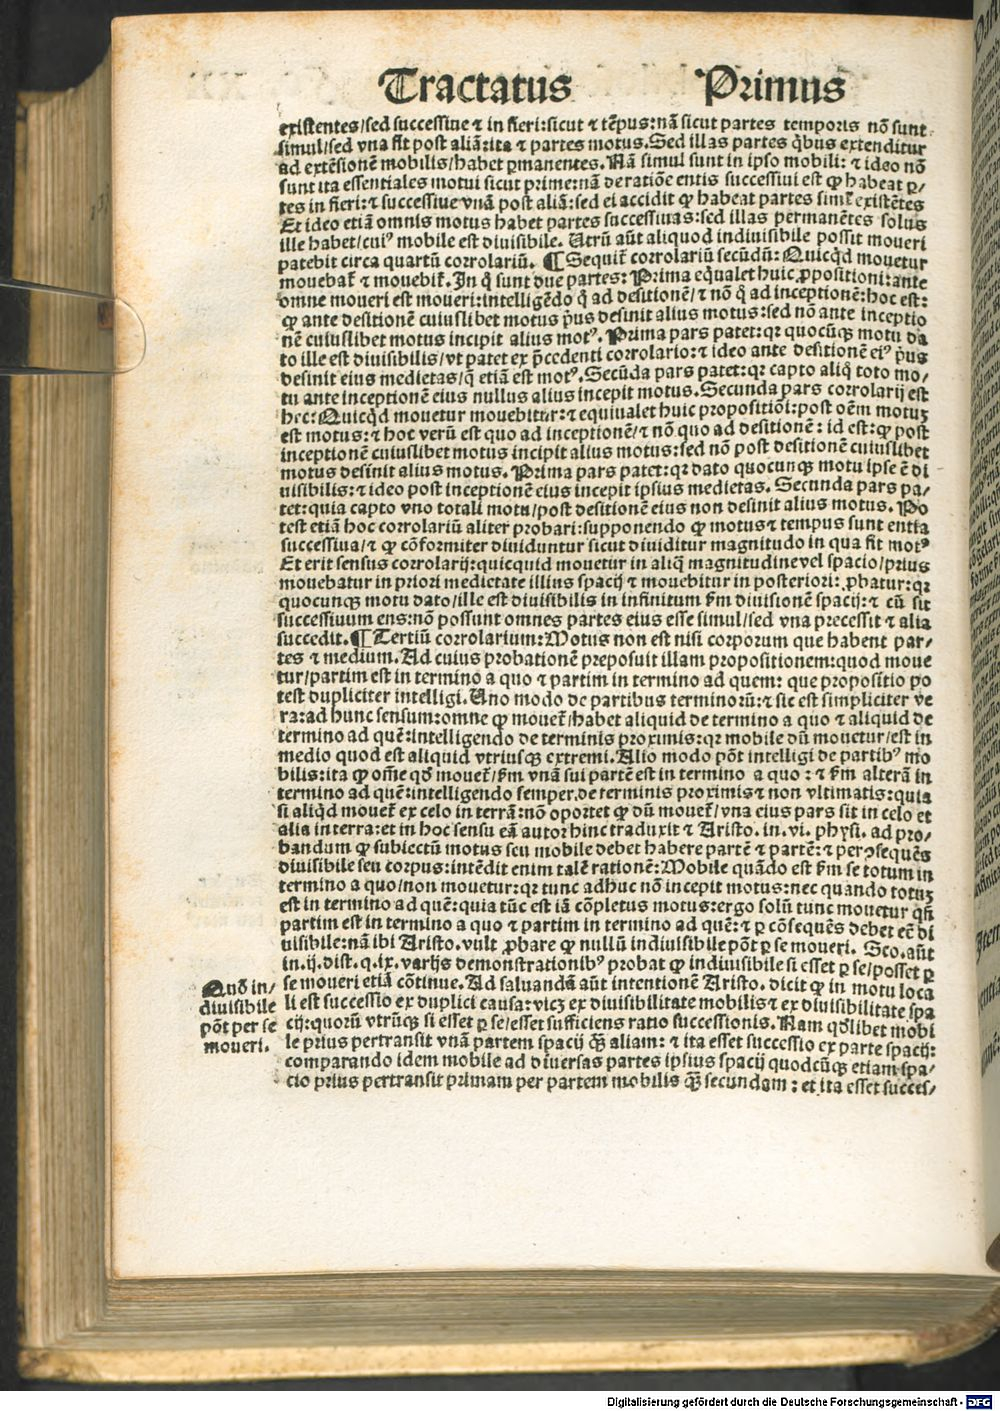 Tractatus Primus
existentes/sed successiue ⁊ in fieri:sicut ⁊ tẽpus:nã sicut partes temporis nõ sunt
simul/sed vna fit post aliã:ita ⁊ partes motus.Sed illas partes q̃bus extenditur
ad extẽsionẽ mobilis/habet ꝑmanentes.Nã simul sunt in ipso mobili: ⁊ ideo nõ
sunt ita essentiales motui sicut prime:nã de ratiõe entis successiui est ꝙ habeat ꝑ/
tes in fieri:⁊ successiue vnã post aliã:sed ei accidit ꝙ habeat partes simĩ existẽtes
Et ideo etiã omnis motus habet partes successiuas:sed illas permanẽtes solus
ille habet/cuiꝰ mobile est diuisibile. Utrũ aũt aliquod indiuisibile possit moueri
patebit circa quartũ corrolariũ. ¶ Sequit̃ corrolariũ secũdũ: Quicq̃d mouetur
mouebat̃ ⁊ mouebit̃. In q̃ sunt due partes: Prima eq̃ualet huic ꝓpositioni:ante
omne moueri est moueri:intelligẽdo q̃ ad desitionẽ/⁊ nõ q̃ ad inceptionẽ:hoc est:
ꝙ ante desitionẽ cuiuslibet motus p̃us desinit alius motus:sed nõ ante inceptio
nẽ cuiuslibet motus incipit alius motꝰ. Prima pars patet:qꝛ quocũqꝫ motu da
to ille est diuisibilis/vt patet ex p̃cedenti corrolario:⁊ ideo ante desitionẽ eiꝰ p̃us
desinit eius medietas/q̃ etiã est motꝰ.Secũda pars patet:qꝛ capto aliq̃ toto mo/
tu ante inceptionẽ eius nullus alius incepit motus.Secunda pars corrolarij est
hec:Quicq̃d mouetur mouebitur:⁊ equiualet huic propositiõi:post oẽm motuꝫ
est motus:⁊ hoc verũ est quo ad inceptionẽ/⁊ nõ quo ad desitionẽ: id est:ꝙ post
inceptionẽ cuiuslibet motus incipit alius motus:sed nõ post desitionẽ cuiuslibet
motus desinit alius motus. Prima pars patet:qꝛ dato quocunqꝫ motu ipse ẽ di
uisibilis:⁊ ideo post inceptionẽ eius incepit ipsius medietas. Secunda pars pa/
tet:quia capto vno totali motu/post desitionẽ eius non desinit alius motus. Po
test etiã hoc corrolariũ aliter probari:supponendo ꝙ motus ⁊ tempus sunt entia
successiua/⁊ ꝙ cõformiter diuiduntur sicut diuiditur magnitudo in qua fit motꝰ
Et erit sensus corrolarij:quicquid mouetur in aliq̃ magnitudine vel spacio/prius
mouebatur in priori medietate illius spacij ⁊ mouebitur in posteriori: ꝓbatur:qꝛ
quocunqꝫ motu dato/ille est diuisibilis in infinitum ẜm diuisionẽ spacij:⁊ cũ sit
successiuum ens:nõ possunt omnes partes eius esse simul/sed vna precessit ⁊ alia
succedit.¶ Tertiũ corrolarium:Motus non est nisi corporum que habent par/
tes ⁊ medium.Ad cuius probationẽ preposuit illam propositionem:quod moue
tur/partim est in termino a quo ⁊ partim in termino ad quem: que propositio po
test dupliciter intelligi.Uno modo de partibus terminorũ:⁊ sic est simpliciter ve
ra:ad hunc sensum:omne ꝙ mouet̃/habet aliquid de termino a quo ⁊ aliquid de
termino ad quẽ:intelligendo de terminis proximis:qꝛ mobile dũ mouetur/est in
medio quod est aliquid vtriusqꝫ extremi.Alio modo põt intelligi de partibꝰ mo
bilis:ita ꝙ om̃e qd̃ mouet̃/ẜm vnã sui partẽ est in termino a quo : ⁊ ẜm alterã in
termino ad quẽ:intelligendo semper de terminis proximis ⁊ non vltimatis:quia
si aliq̃d mouet̃ ex celo in terrã:nõ oportet ꝙ dũ mouet̃/vna eius pars sit in celo et
alia in terra:et in hoc sensu eã autor hinc traduxit ⁊ Aristo.in.vi.physi.ad pro/
bandum ꝙ subiectũ motus seu mobile debet habere partẽ ⁊ partẽ:⁊ per ꝯsequẽs
diuisibile seu corpus:intẽdit enim talẽ rationẽ:Mobile quãdo est ẜm se totum in
termino a quo/non mouetur:qꝛ tunc adhuc nõ incepit motus:nec quando totuꝫ
est in termino ad quẽ:quia tũc est iã cõpletus motus:ergo solũ tunc mouetur qñ
partim est in termino a quo ⁊ partim in termino ad quẽ:⁊ ꝑ cõsequẽs debet eẽ di
uisibile:nã ibi Aristo.vult ꝓbare ꝙ nullũ indiuisibile põt ꝑ se moueri. Sco.aũt
in.ij.dist.q.ix.varijs demonstrationibꝰ probat ꝙ indiuisibile si esset ꝑ se/posset ꝑ
se moueri etiã cõtinue.Ad saluandã aũt intentionẽ Aristo.dicit ꝙ in motu loca
li est successio ex duplici causa:vicꝫ ex diuisibilitate mobilis ⁊ ex diuisibilitate spa
cij:quorũ vtrũqꝫ si esset ꝑ se/esset sufficiens ratio successionis.Nam qd̃libet mobi
le prius pertransit vnã partem spacij q̃ꝫ aliam: ⁊ ita esset successio ex parte spacij:
comparando idem mobile ad diuersas partes ipsius spacij quodcũqꝫ etiam spa/
cio prius pertransit primam per partem mobilis q̃ꝫ secundam : et ita esset succes/
Quõ in/
diuisibile
põt per se
moueri.
Digitalisierung gefördert durch die Deutsche Forschungsgemeinschaft - DFG